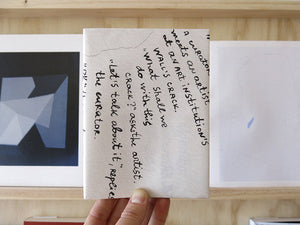 A CURATOR
meets an artist
at an ART INSTITUTION'S
WALL'S CRACK.
"What shall we
do with this
crack?" asks the artist.
"Let's talk about it," replies
the curator.